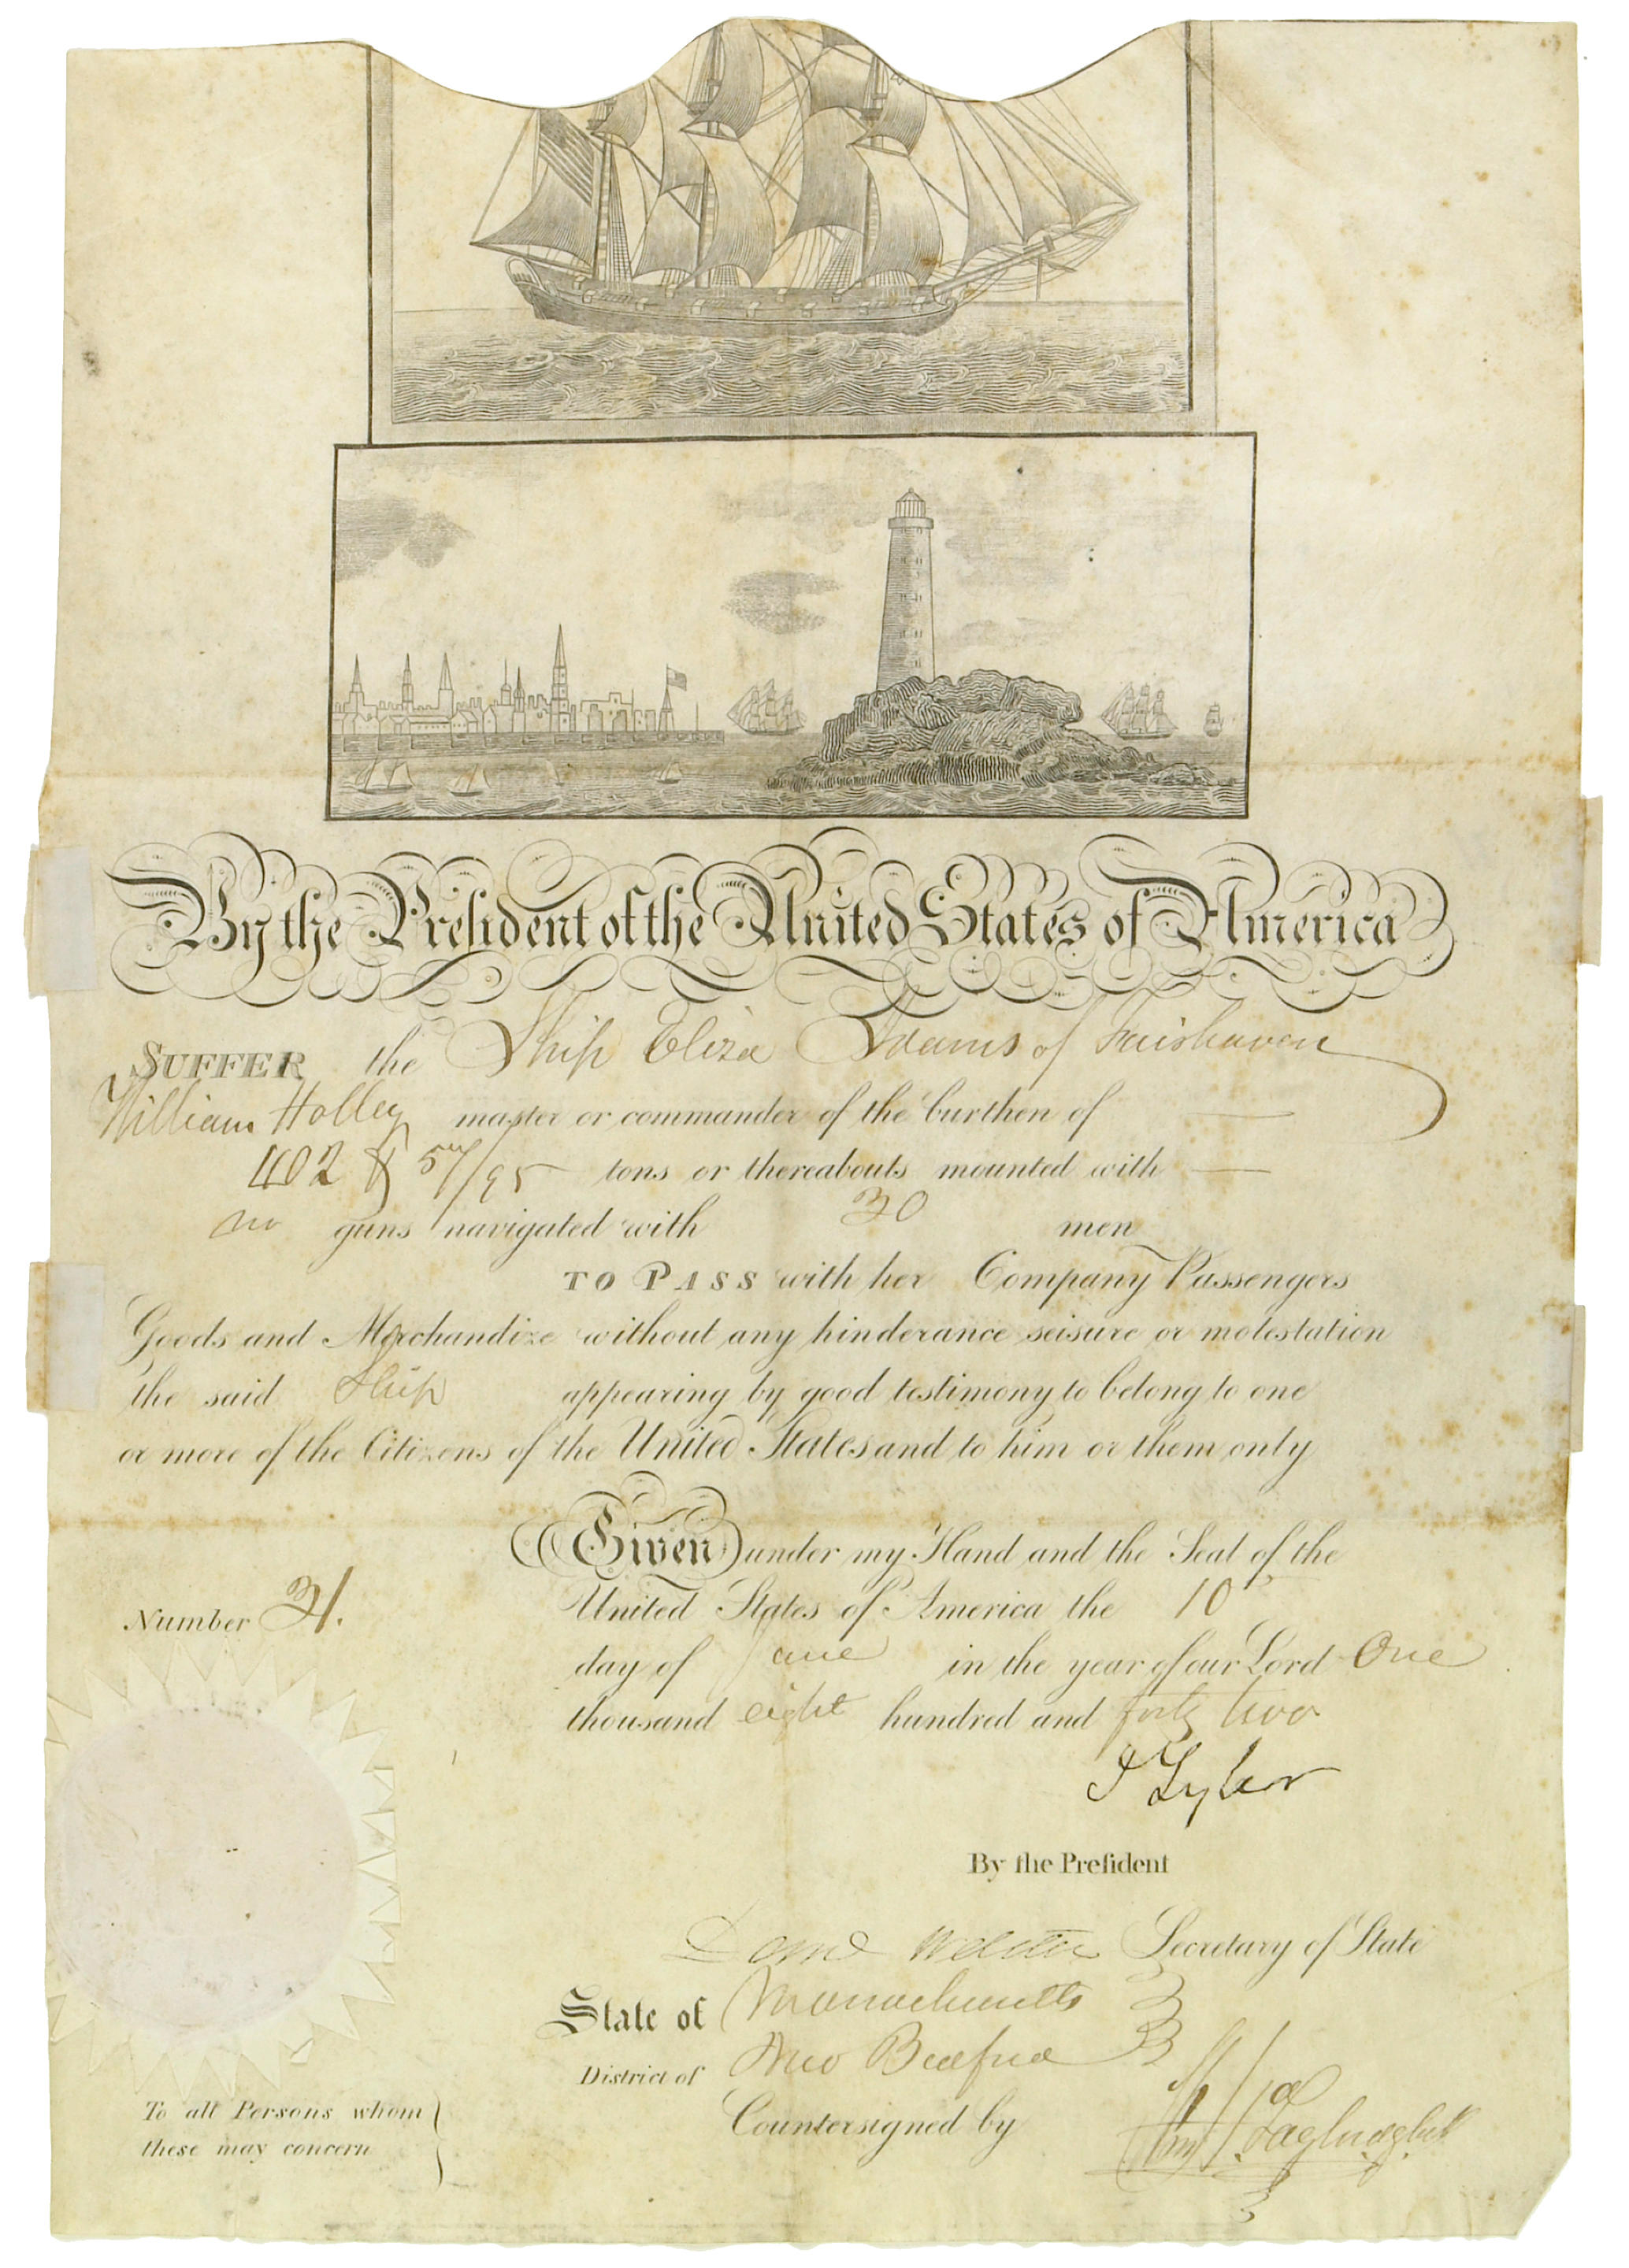 By the President of the United States of America
SUFFER the Ship Eliza Adams of Fairhaven
William Holley master or commander of the burthen of
402 & 54/95 tons or thereabouts mounted with
no guns navigated with 30 men
TO PASS with her Company Passengers
Goods and Merchandize without any hinderance seisure or molestation
the said Ship appearing by good testimony to belong to one
or more of the Citizens of the United States and to him or them only
Given under my Hand and the Seal of the
Number 31.
United States of America the 10
day of June in the year of our Lord One
thousand eight hundred and forty two
J Tyler
By the Preſident
Danl Webster Secretary of State
State of Massachusetts
District of New Bedford
Countersigned by
To all Persons whom
these may concern